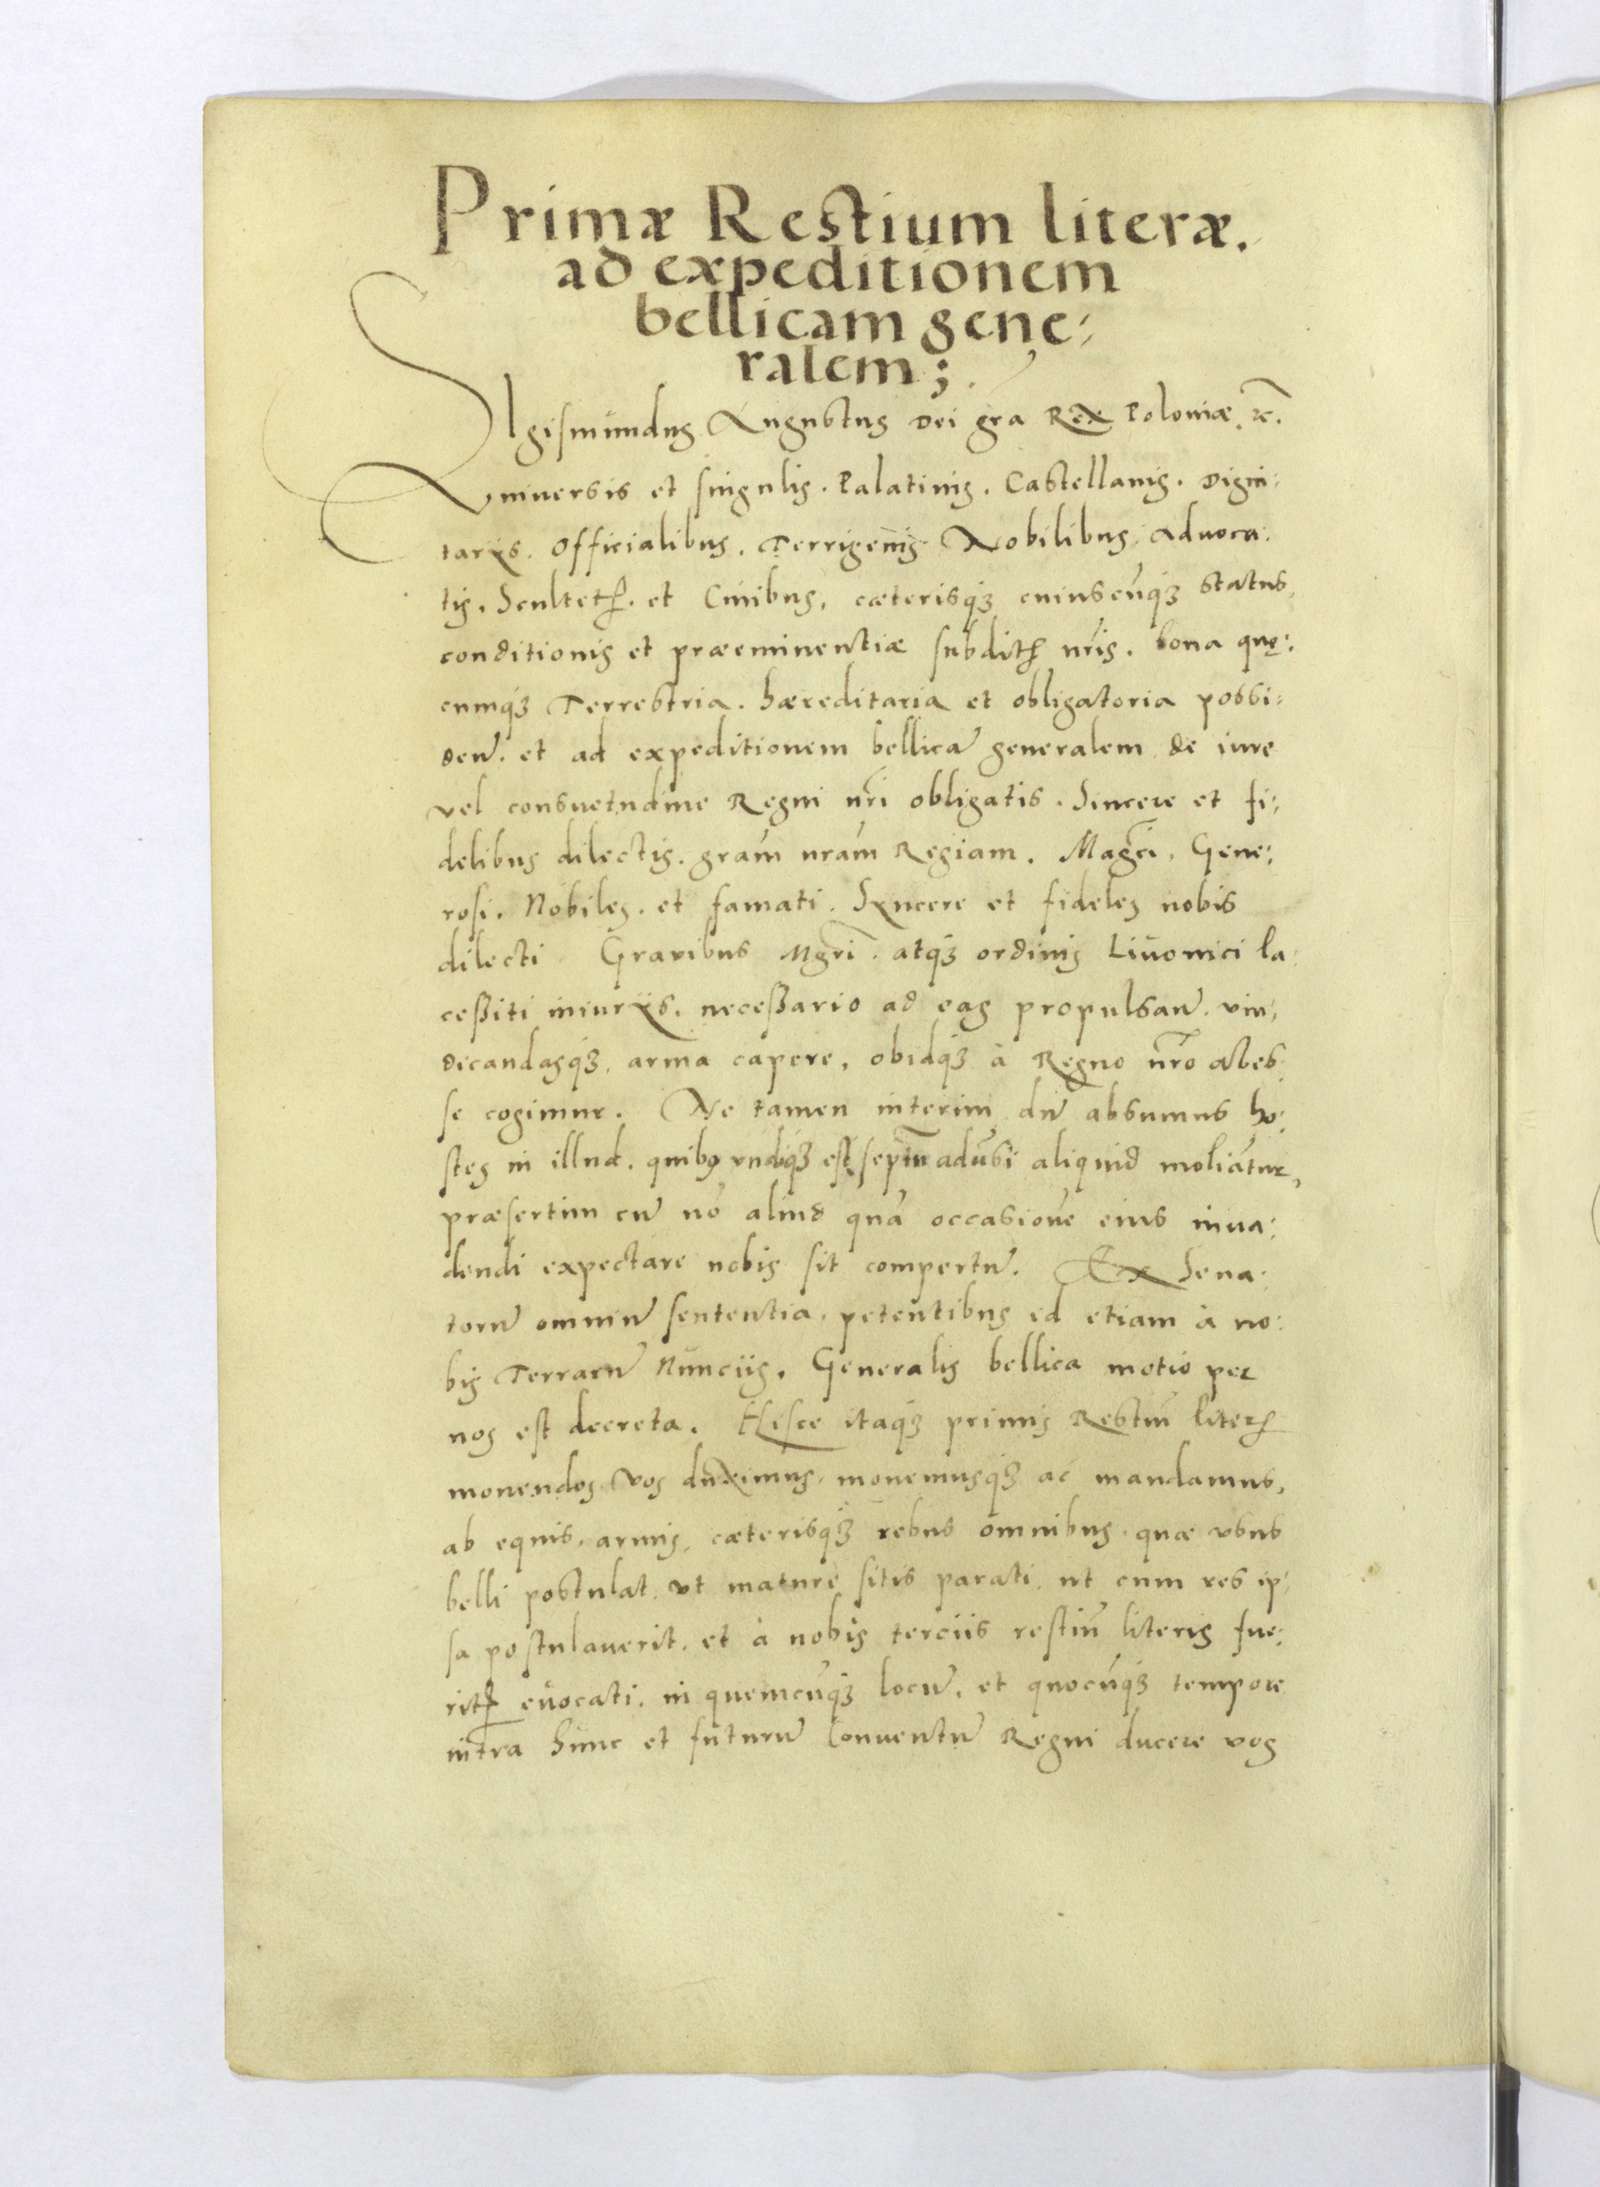 Primæ Restium literæ.
ad expeditionem
bellicam gene:
ralem;
SIgismundus Augustus Dei gra Rex Poloniæ. &c.
Vniuersis et singulis. Palatinis. Castellanis. Digni:
tarijs. Officialibus. Terrigenis Nobilibus. Aduoca:
tis. Scultet. et Ciuibus, cæterisq3 cuiuscũq3 status,
conditionis et præeminentiæ subdit nris. bona quę:
cumq3 Terrestria. hæreditaria et obligatoria possi:
deñ. et ad expeditionem bellicã generalem de iure
vel consuetudine Regni nri obligatis. Sincere et fi:
delibus dilectis. gram nram Regiam. Magci. Gene:
rosi. Nobiles. et famati. Syncere et fideles nobis
dilecti Grauibus Mgri. atq3 ordinis Liuonici la:
cessiti iniurijs. necessario ad eas propulsañ. vin:
dicandasq3. arma capere, obidq3 à Regno nro abes:
se cogimur. Ne tamen interim dũ absumus ho:
stes in illud. quibꝰ vndiq3 est septũ aduersi aliquid moliãtur,
præsertim cũ nõ aliud quã occasionẽ eius inua:
dendi expectare nobis sit compertũ. Ex Sena:
torũ omniũ sententia, petentibus id etiam à no:
bis Terrarũ Nunciis. Generalis bellica motio per
nos est decreta. Hisce itaq3 primis Restiũ liter
monendos vos duximus, monemusq3 ac mandamus,
ab equis, armis, cæterisq3 rebus omnibus. quæ vsus
belli postulat vt mature sitis parati. ut cum res ip:
sa postulauerit. et à nobis terciis restiũ literis fue:
rit euocati. in quemcũq3 locũ. et quocũq3 tempore
intra hunc et futurũ Conuentũ Regni ducere vos